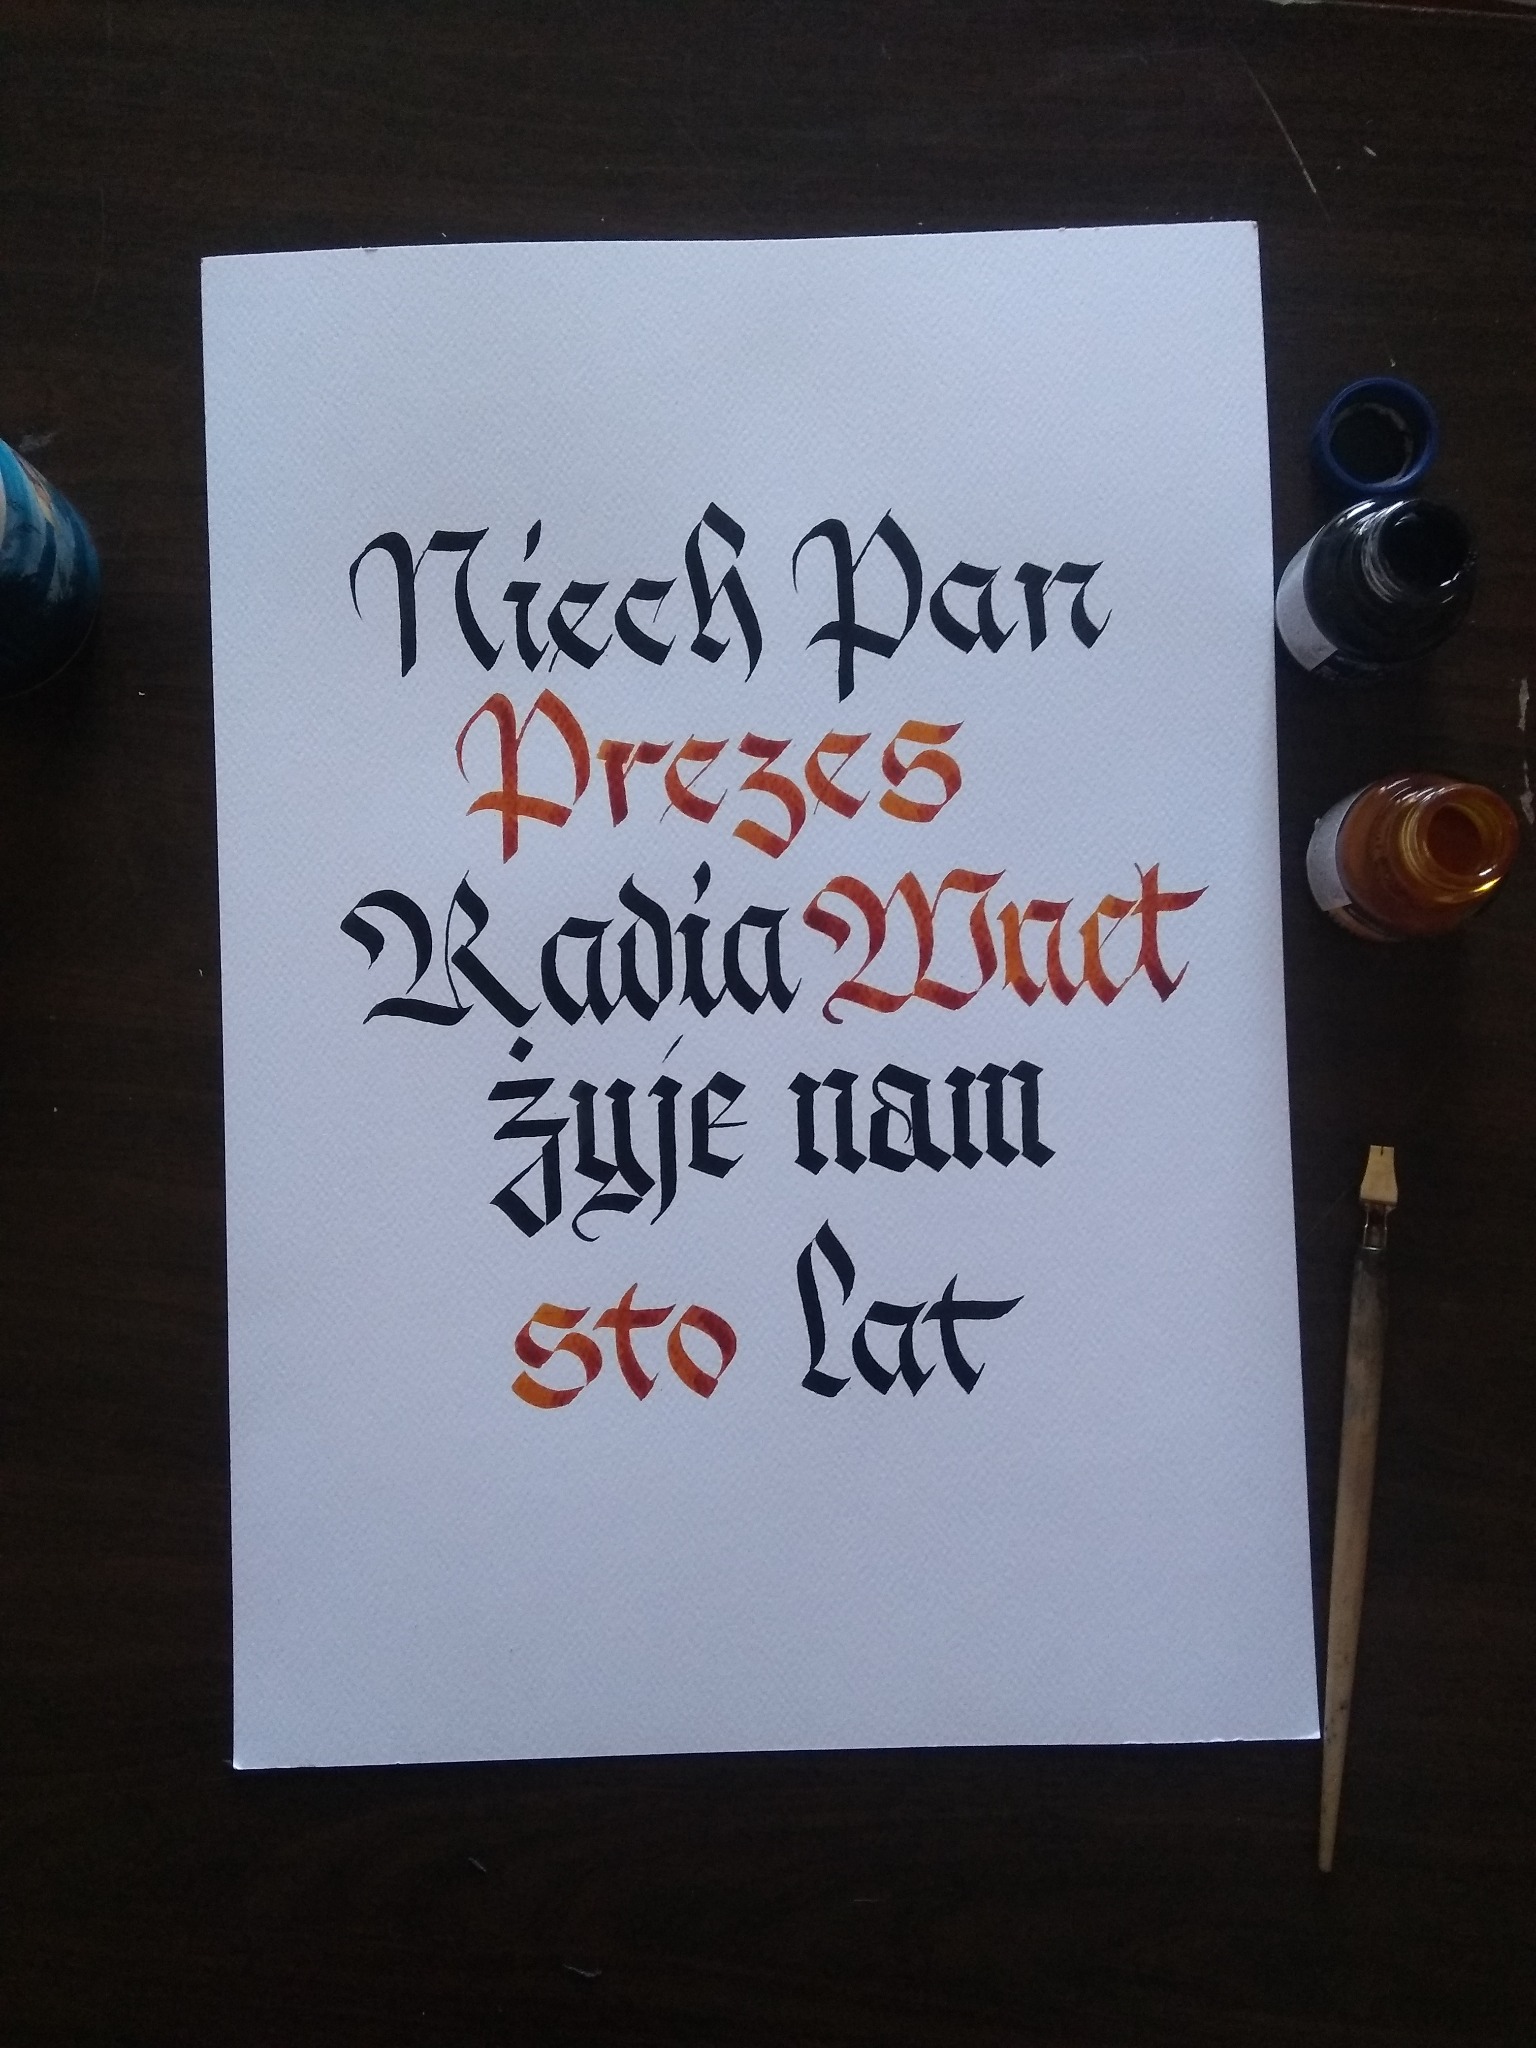 Niech Pan
Prezes
Radia Wnet
żyje nam
sto lat